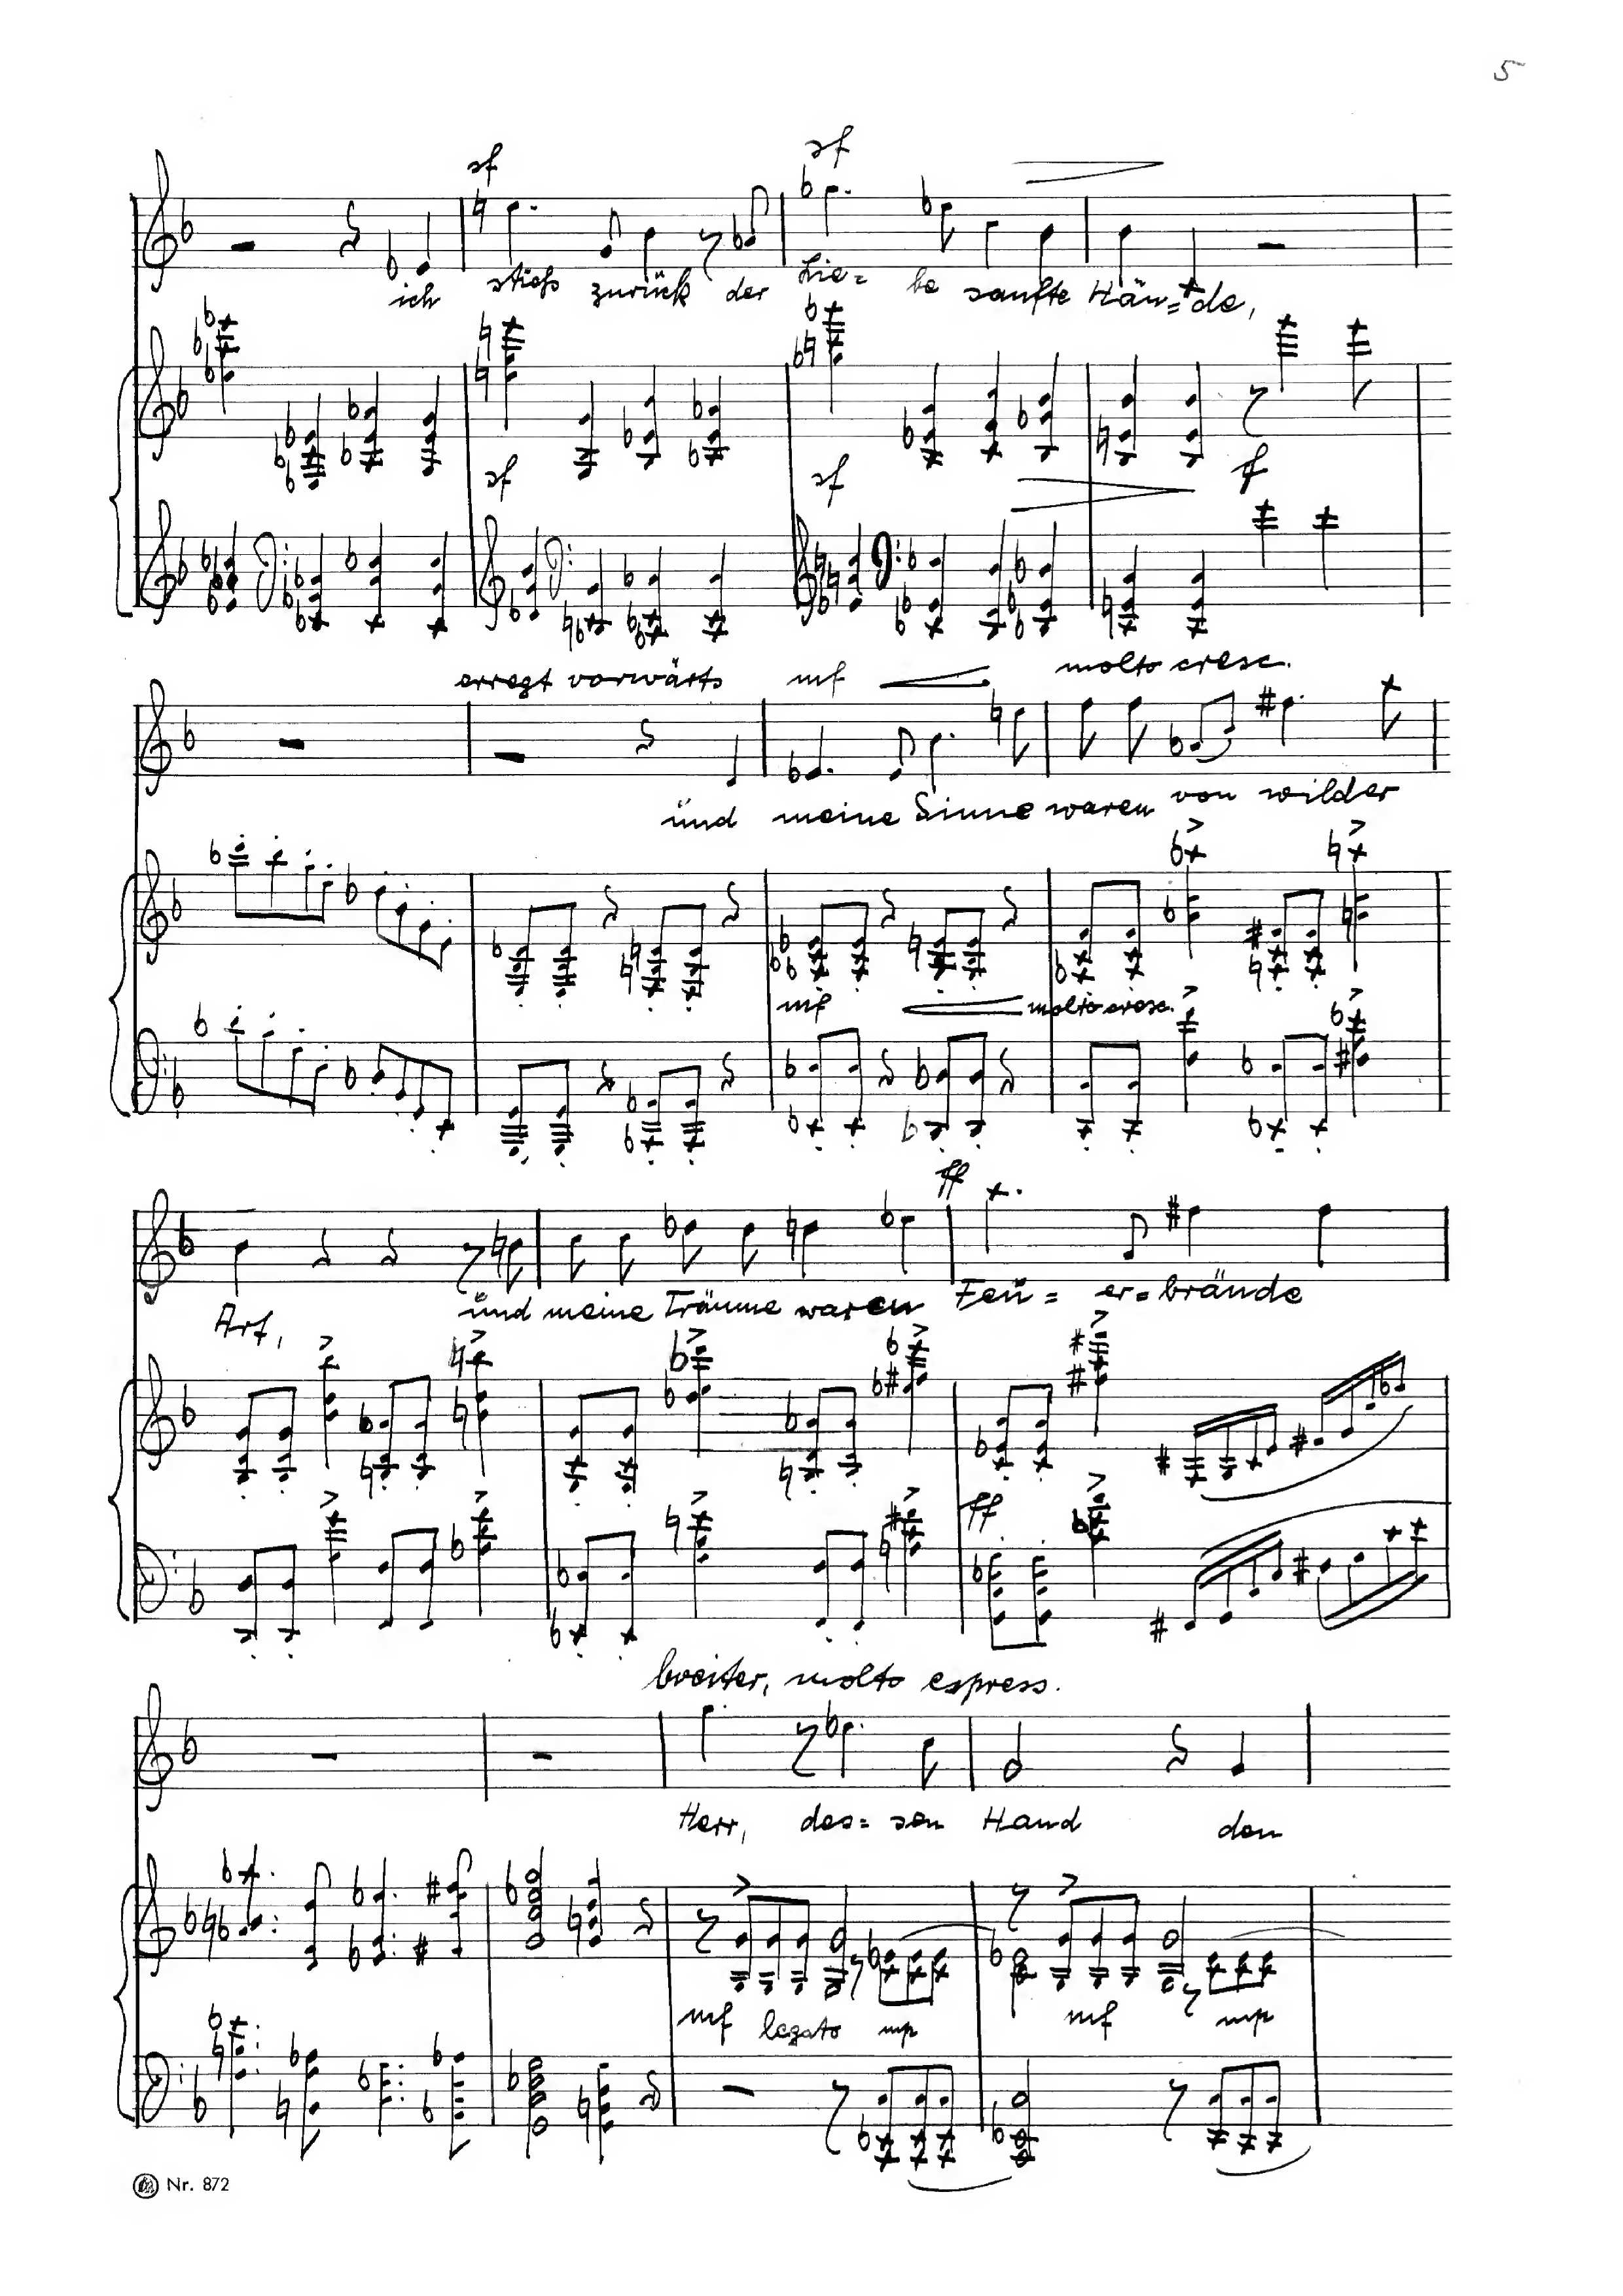 5
sf sf
ich stieß zurück der Lie= be sanfte Hän=de,
sf sf sf
erregt vorwärts mf molto cresc.
und meine Sinne waren von wilder
mf molto cresc.
ff
Art, und meine Träume waren Feu= er=brände
ff
breiter, molto espress.
Herr, des=sen Hand den
mf legato mp mf mp
Nr. 872